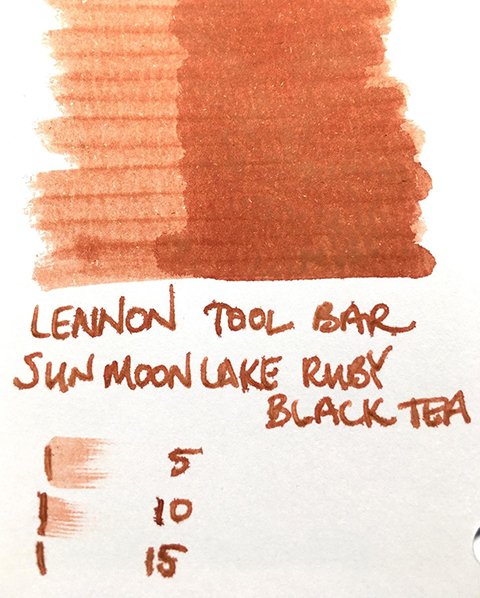 LENNON TOOL BAR
SUN MOON LAKE RUBY
BLACK TEA
5
10
15